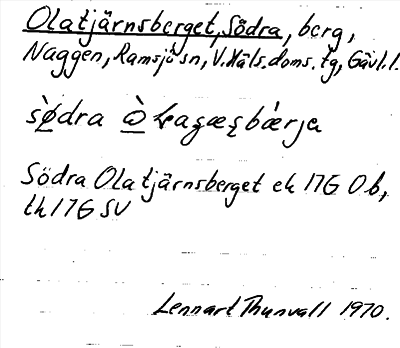 Olatjärnsberget, Södra, berg,
Naggen, Ramsjö sn, V. Häls. doms. tg, Gävl. l.
Södra Olatjärnsberget ek 17G Ob,
th 17G SV
Lennart Thunvall 1970.